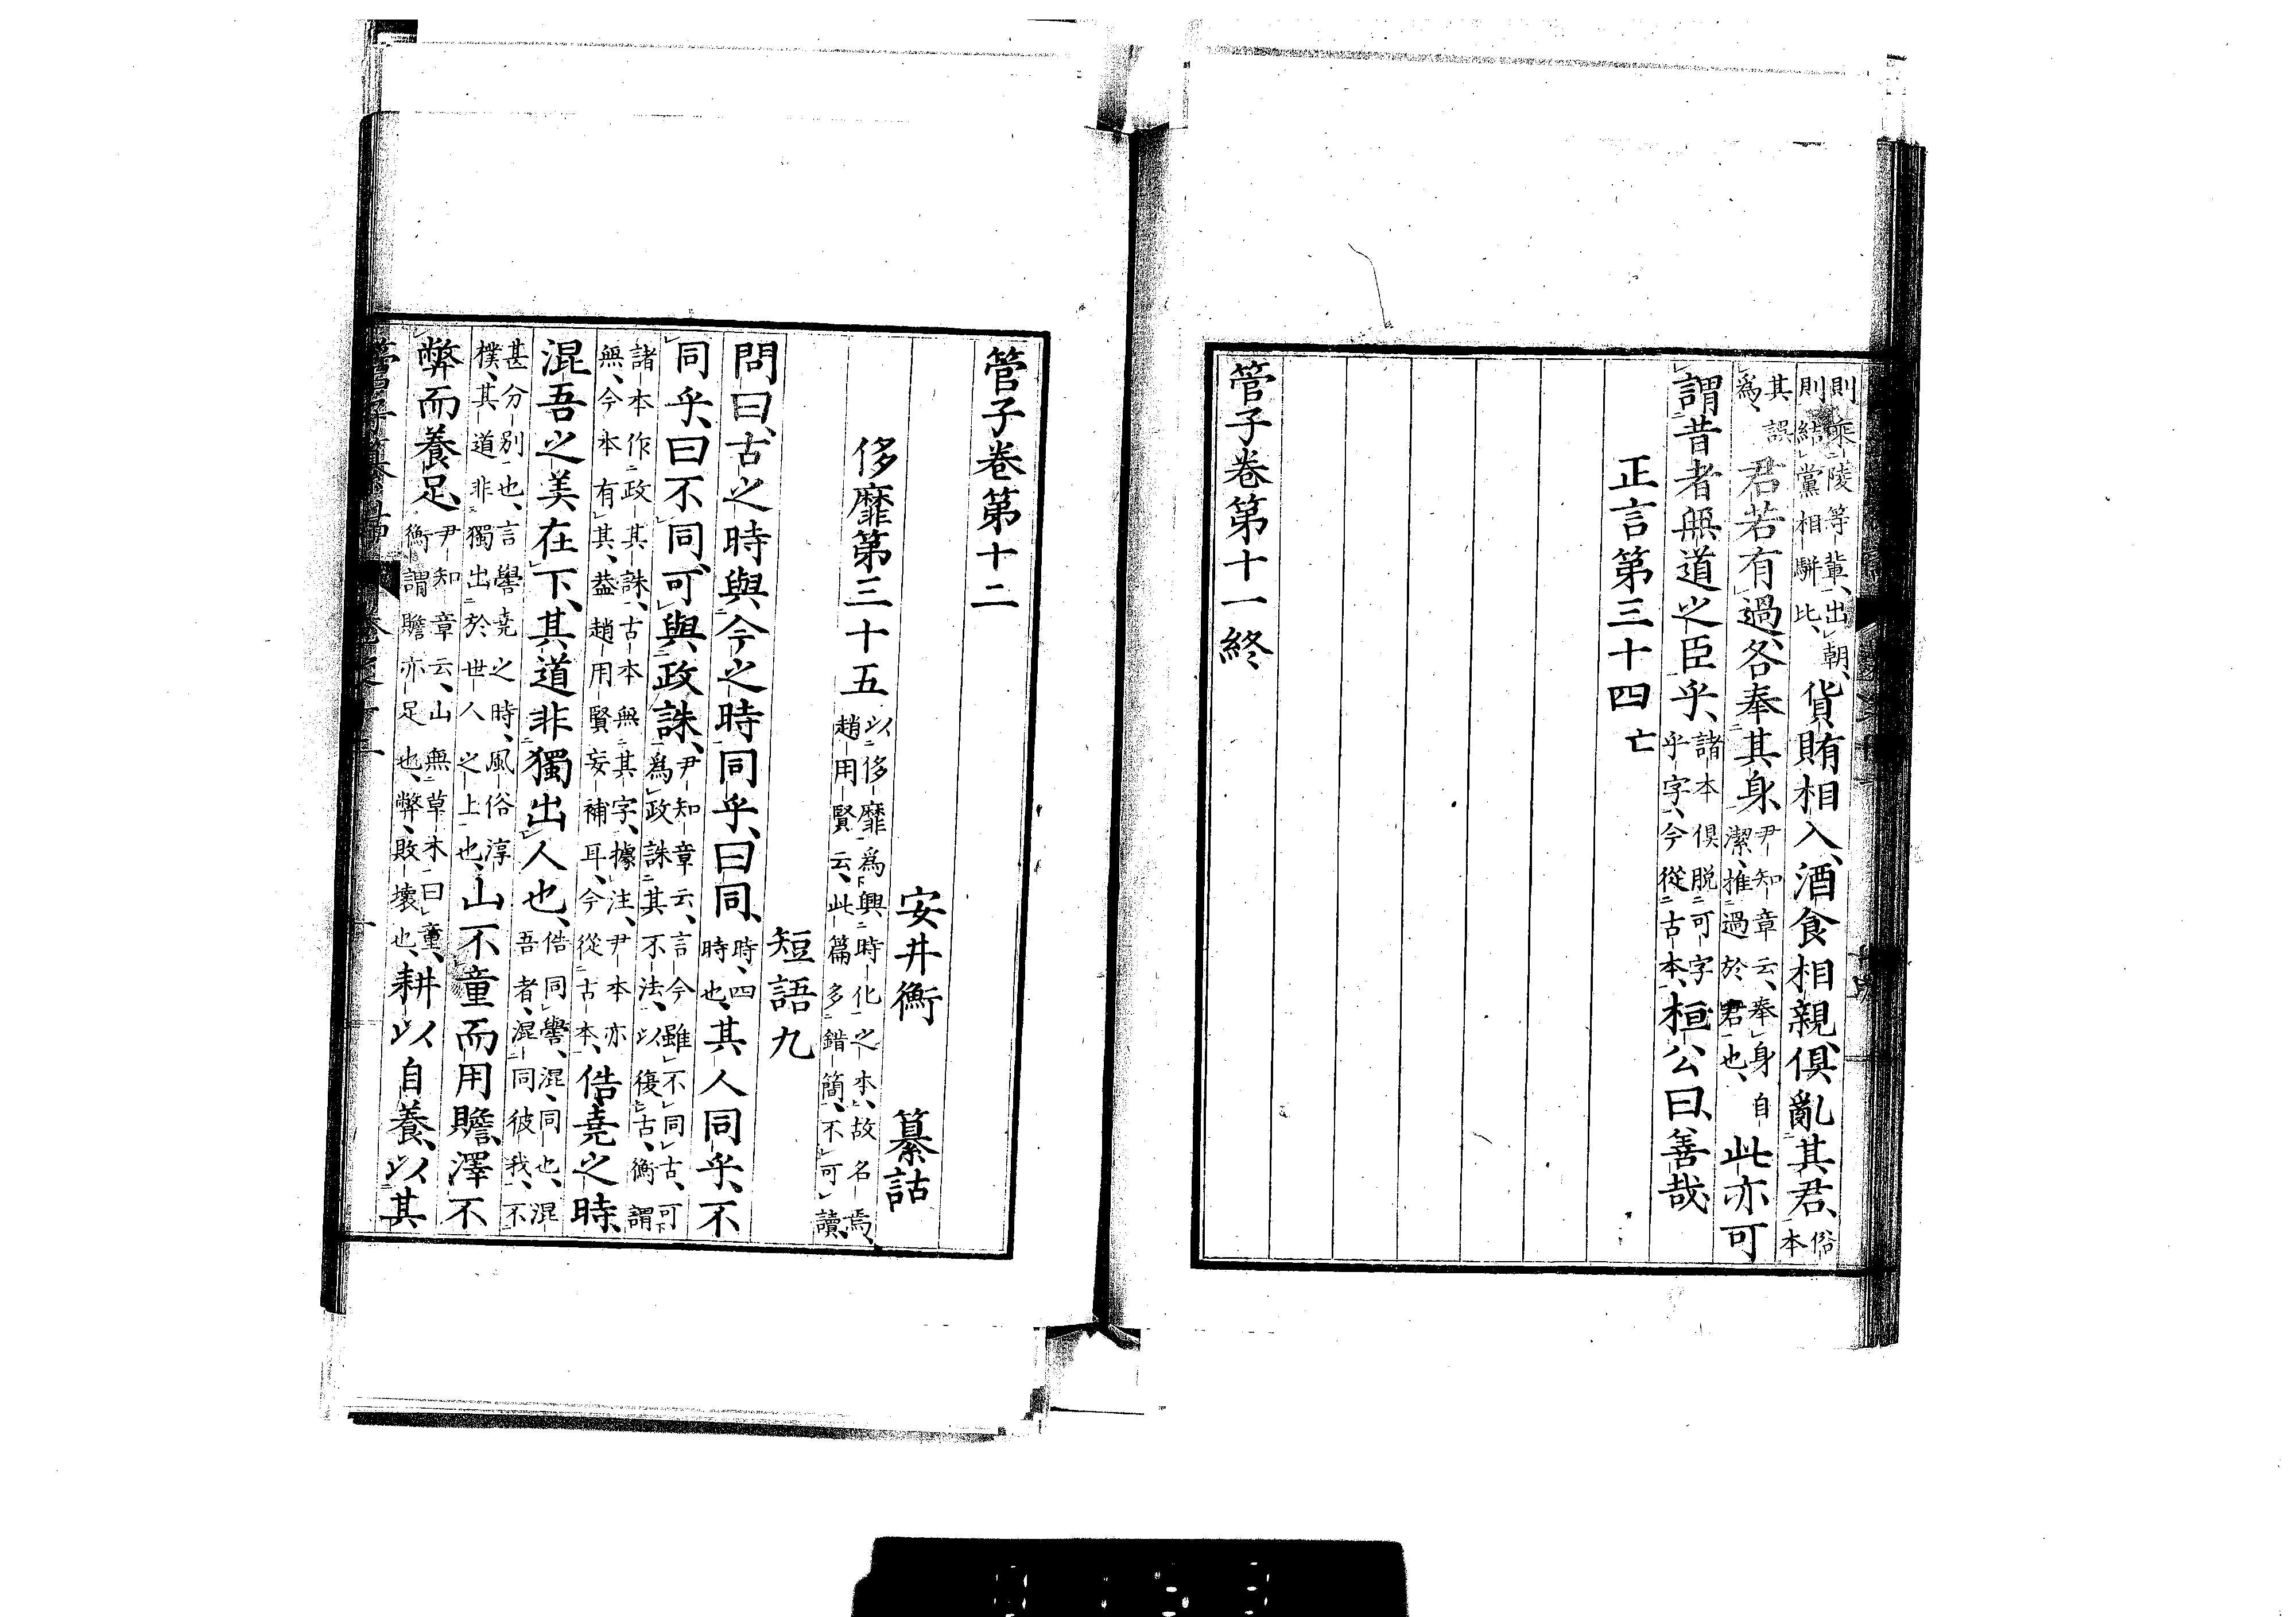 則乘陵等輩、出朝、則結黨相駢比、貨賄相入、酒食相親、俱亂其君、俗本
其誤爲、君若有過、各奉其身、尹知章云、奉身自潔、推過於君也、此亦可
謂昔者無道之臣乎、諸本俱脱可字乎字、今從古本、桓公曰、善哉、
正言第三十四 亡
管子卷第十一終
管子卷第十二
安井衡 纂詁
侈靡第三十五 以侈靡爲興時化之本、故名焉、趙用賢云、此篇多錯簡、不可讀、
短語九
問曰、古之時與今之時同乎、曰同、時、四時也、其人同乎、不
同乎、曰不同、可與政誅、尹知章云、言今雖不同古、可爲政誅其不法、以復古、衡謂
諸本作政其誅、古本無其字、據注、尹本亦無、今本有其、蓋趙用賢妄補耳、今從古本、俈堯之時、
混吾之美在下、其道非獨出人也、俈同嚳、混、同也、混吾者、混同彼我、不
甚分別也、言嚳堯之時、風俗淳樸、其道非獨出於世人之上也、山不童而用贍、澤不
弊而養足、尹知章云、山無草木曰童、衡謂贍亦足也、弊、敗壞也、耕以自養、以其